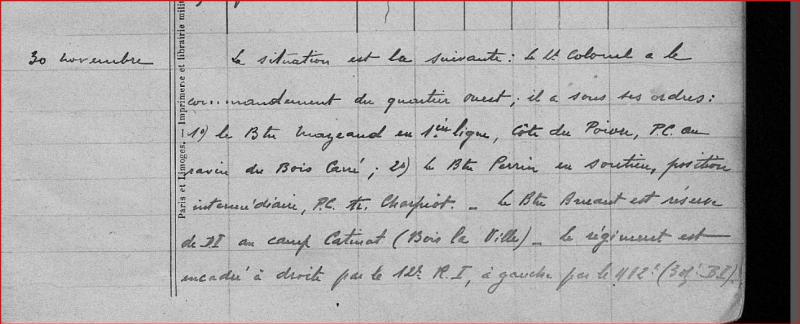 Paris et Limoges. — Imprimerie et librairie milit
30 novembre
La situation est la suivante : le Lt Colonel a le
commandement du quartier ouest ; il a sous ses ordres :
1º) le Btn Mazeaud en 1ère ligne, Côte du Poivre, P.C. au
ravin du Bois Carré ; 2º) le Btn Perrin en soutien, position
intermédiaire, P.C. Charpiot. — Le Btn est réserve
de DI au camp Catinat (Bois la Ville) — Le régiment est
encadré à droite par le 12e R.I, à gauche par le